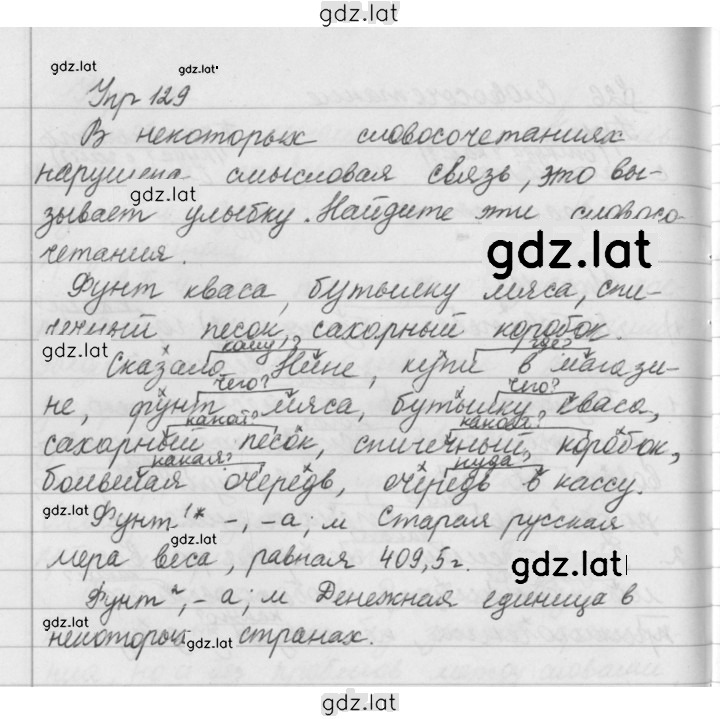 gdz.lat
gdz.lat gdz.lat
Упр 129
В некоторых словосочетаниях
нарушена смысловая связь, это вы-
gdz.lat
зывает улыбку. Найдите эти словосо-
четания. gdz.lat
Фунт кваса, бутылку мяса, спи-
ченный песок, сахорный коробок.
gdz.lat кому? где?
Сказало Нине, купи в магази-
чего? чего?
не, фунт мяса, бутылку кваса,
какой? какова?
сахарный песок, спичечный, коробок,
какая? куда
большая очередь, очередь в кассу.
gdz.lat Фунт¹* -, -а; м Старая русская
gdz.lat
мера веса, равная 409,5 г. gdz.lat
Фунт², -а; м Денежная единица в
gdz.lat
некоторый gdz.lat странах.
gdz.lat